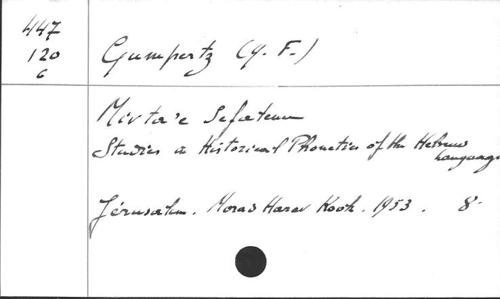 447
120
6
Gumpertz (Y. F.)
Mivta'e Sefatenu
Studies in Historical Phonetics of the Hebrew
Language
Jérusalem. Mosad Harav Kook. 1953. 8°